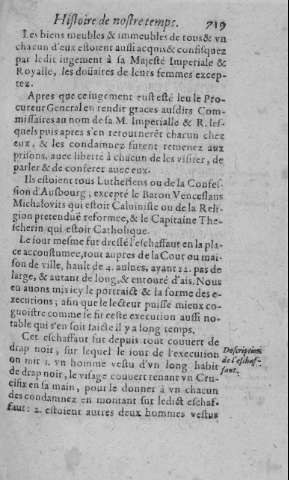 Histoire de nostre temps. 719
Les biens meubles & immeubles de tous & vn
chacun d'eux estoient aussi acquis & confisquez
par ledit iugement à sa Majesté Imperiale &
Royalle, les doüaires de leurs femmes excep-
tez.
Apres que ce iugement eust esté leu le Pro-
cureur General en rendit graces ausdits Com-
missaires au nom de sa M. Imperialle & R. les-
quels puis apres s'en retournerẽt chacun chez
eux, & les condamnez furent remenez aux
prisons, auec liberté à chacun de les visiter, de
parler & de conferer auec eux.
Ils estoient tous Lutheriens ou de la Confes-
sion d'Ausbourg, excepté le Baron Venceslaus
Michalovits qui estoit Caluiniste ou de la Reli-
gion pretenduë reformee, & le Capitaine The-
scherin qui estoit Catholique.
Le iour mesme fut dressé l'eschaffaut en la pla-
ce accoustumee, tout aupres de la Cour ou mai-
son de ville, hault de 4. aulnes, ayant 22. pas de
large, & autant de long, & entouré d'ais. Nous
en auons mis icy le portraict & la forme des e-
xecutions; afin que le lecteur puisse mieux co-
gnoistre comme se fit ceste execution aussi no-
table qui s'en soit faicte il y a long temps.
Cet eschaffaut fut depuis tout couuert de
drap noir, sur lequel le iour de l'execution
on mit 1. vn homme vestu d'vn long habit
de drap noir, le visage couuert tenant vn Cru-
cifix en sa main, pour le donner à vn chacun
des condamnez en montant sur ledict eschaf-
faut: 2. estoient autres deux hommes vestus
Description
de l'eschaf-
faut.